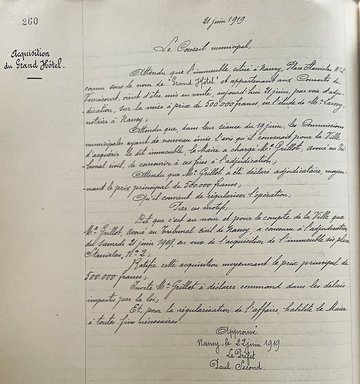 260
21 juin 1919
Acquisition
du Grand Hôtel.
Le Conseil municipal,
Attendu que l'immeuble situé à Nancy, Place Stanislas, N° 2,
connu sous le nom de "Grand Hôtel" et appartenant aux Consorts de
vient d'être mis en vente, aujourd'hui 21 juin, par voie d'adju-
dication, sur la mise à prix de 500.000 francs, en l'étude de Me
notaire à Nancy;
Attendu que, dans leur séance du 19 juin, les Commissions
municipales ayant de nouveau émis l'avis qu'il convenait pour la Ville
d'acquérir le dit immeuble, le Maire a chargé Me Grillot, avoué au Tri-
bunal civil, de concourir à ces fins à l'adjudication;
Attendu que Me Grillot a été déclaré adjudicataire moyen-
nant le prix principal de francs;
Qu'il convient de régulariser l'opération,
Par ces motifs,
Dit que c'est au nom et pour le compte de la Ville que
Me Grillot, avoué au Tribunal civil de Nancy, a concouru à l'adjudication
du samedi 21 juin 1919 en vue de l'acquisition de l'immeuble sis place
Stanislas, N° 2;
Ratifie cette acquisition moyennant le prix principal de
francs;
Invite Me Grillot à déclarer command dans les délais
impartis par la loi;
Et, pour la régularisation de l'affaire, habilite le Maire
à toutes fins nécessaires.
Approuvé
Nancy, le 22 juin 1919.
Le Préfet
Paul